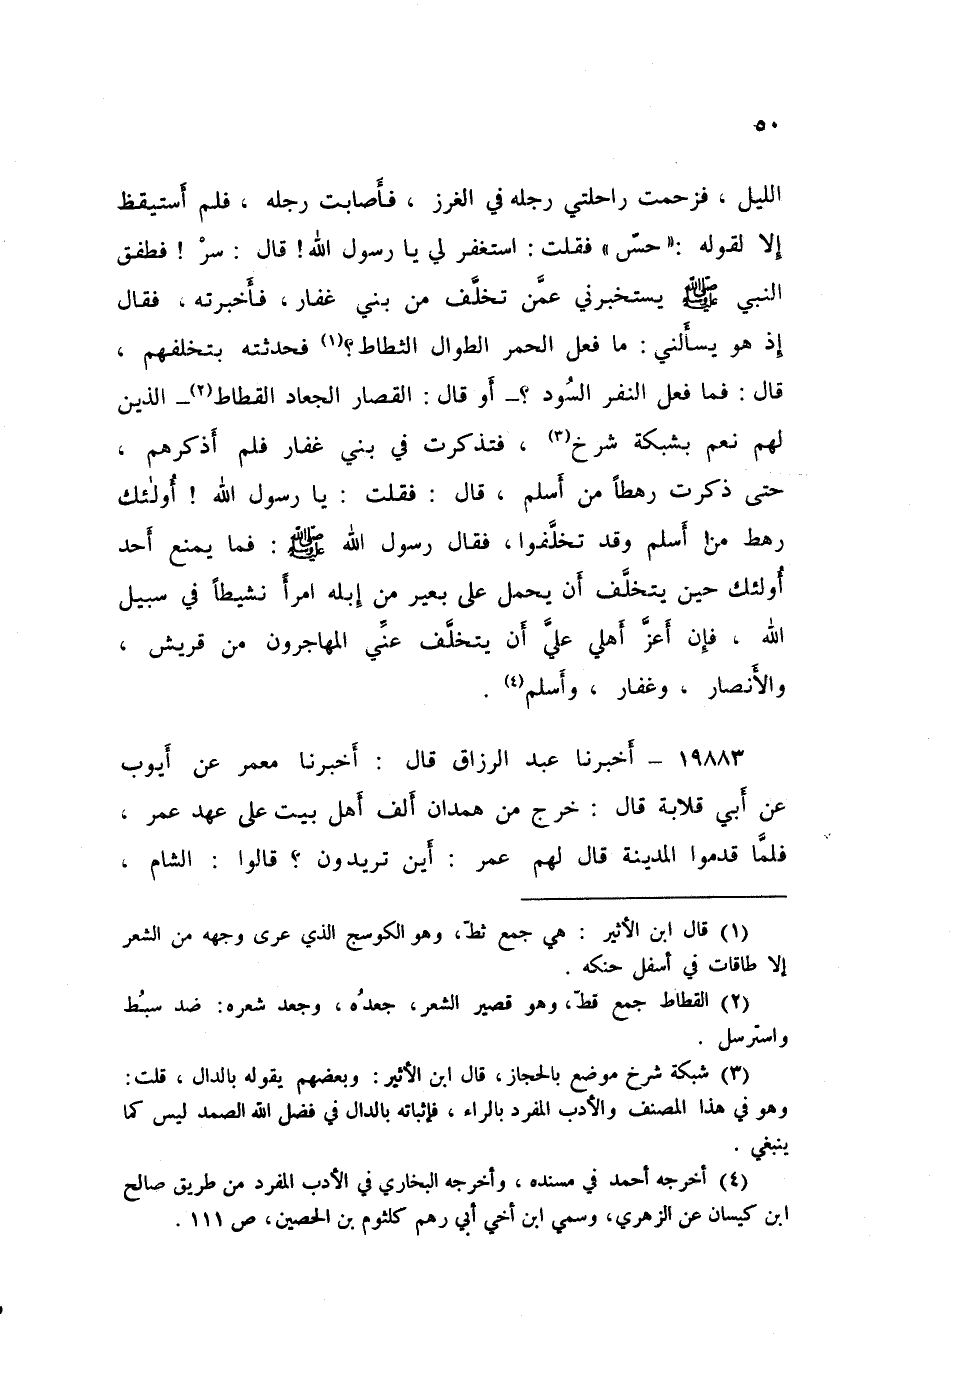 ٥٠
الليل ، فزحمت راحلتي رجله في الغرز ، فأصابت رجله ، فلم أستيقظ
إلا لقوله :« حسّ » فقلت : استغفر لي يا رسول الله! قال : سرْ ! فطفق
النبي ﷺ يستخبرني عمَّن تخلَّف من بني غفار ، فأخبرته ، فقال
إذ هو يسألني : ما فعل الحمر الطوال الثطاط؟(١) فحدثته بتخلفهم ،
قال : فما فعل النفر السُود ؟ـ أو قال : القصار الجعاد القطاط(٢)ـ الذين
لهم نعم بشبكة شرخ(٣) ، فتذكرت في بني غفار فلم أذكرهم ،
حتى ذكرت رهطاً من أسلم ، قال : فقلت : يا رسول الله ! أولٰئك
رهط من أسلم وقد تخلَّفوا ، فقال رسول الله ﷺ : فما يمنع أحد
أولئك حين يتخلَّف أن يحمل على بعير من إبله امرأً نشيطاً في سبيل
الله ، فإن أعزَّ أهلي عليَّ أن يتخلَّف عنِّي المهاجرون من قريش ،
والأنصار ، وغفار ، وأسلم(٤) .
١٩٨٨٣ ـ أخبرنا عبد الرزاق قال : أخبرنا معمر عن أيوب
عن أبي قلابة قال : خرج من همدان ألف أهل بيت على عهد عمر ،
فلمَّا قدموا المدينة قال لهم عمر : أين تريدون ؟ قالوا : الشام ،
(١) قال ابن الأثير : هي جمع ثطّ، وهو الكوسج الذي عرى وجهه من الشعر
إلا طاقات في أسفل حنكه .
(٢) القطاط جمع قطّ، وهو قصير الشعر، جعدُه ، وجعد شعره: ضد سبُط
واسترسل .
(٣) شبكة شرخ موضع بالحجاز، قال ابن الأثير: وبعضهم يقوله بالدال ، قلت:
وهو في هذا المصنف والأدب المفرد بالراء ، فإثباته بالدال في فضل الله الصمد ليس كما
ينبغي .
(٤) أخرجه أحمد في مسنده ، وأخرجه البخاري في الأدب المفرد من طريق صالح
ابن كيسان عن الزهري، وسمي ابن أخي أبي رهم كلثوم بن الحصين، ص ١١١ .